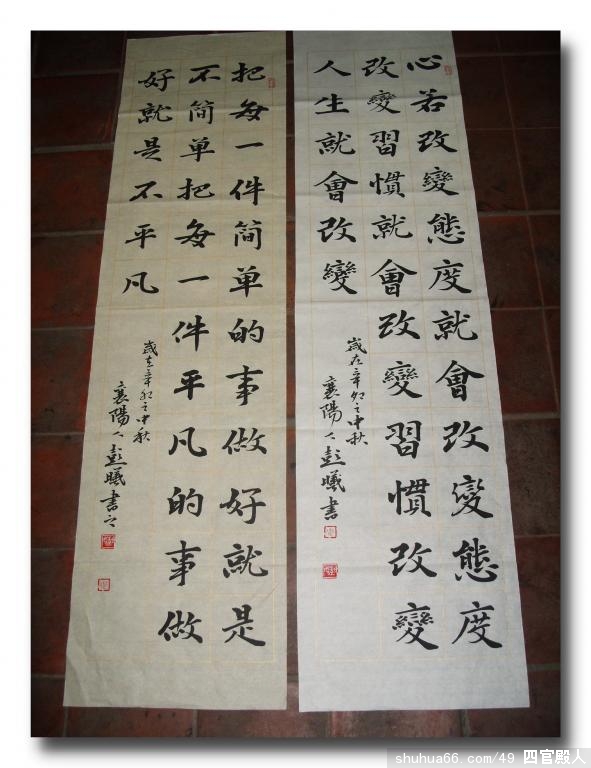 心若改變態度就會改變態度
改變習慣就會改變習慣改變
人生就會改變
歲在辛卯之中秋
襄陽人彭曦書
把每一件简单的事做好就是
不简单把每一件平凡的事做
好就是不平凡
歲在辛卯之中秋
襄陽人彭曦書之
shuhua66.com/49 四官殿人